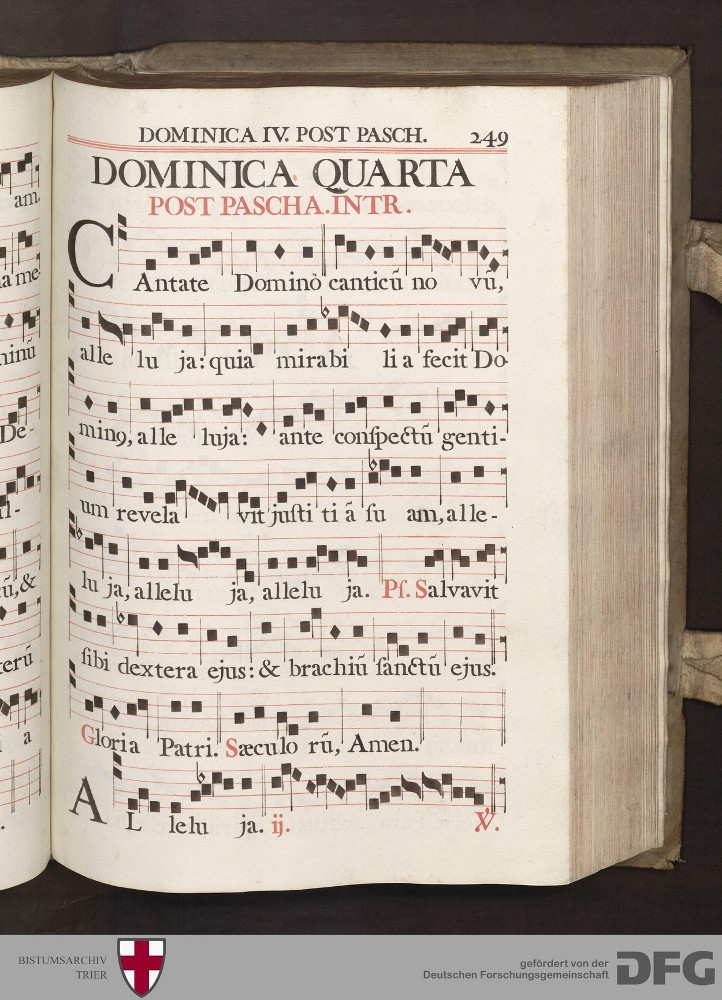 am.
a me-
ninū
De-
al-
cū, &
terū
i a
DOMINICA IV. POST PASCH. 249
DOMINICA QUARTA
POST PASCHA. INTR.
CAntate Dominò canticū no vū,
alle lu ja: quia mirabi li a fecit Do-
minꝯ, alle luja: ante conſpectū genti-
um revela vit juſti ti ā ſu am, alle-
lu ja, allelu ja, allelu ja. Pſ. Salvavit
ſibi dextera ejus: & brachiū ſanctū ejus.
Gloria Patri. Sæculo rū, Amen.
AL lelu ja. ij. ℣.
BISTUMSARCHIV
TRIER
gefördert von der
Deutschen Forschungsgemeinschaft
DFG